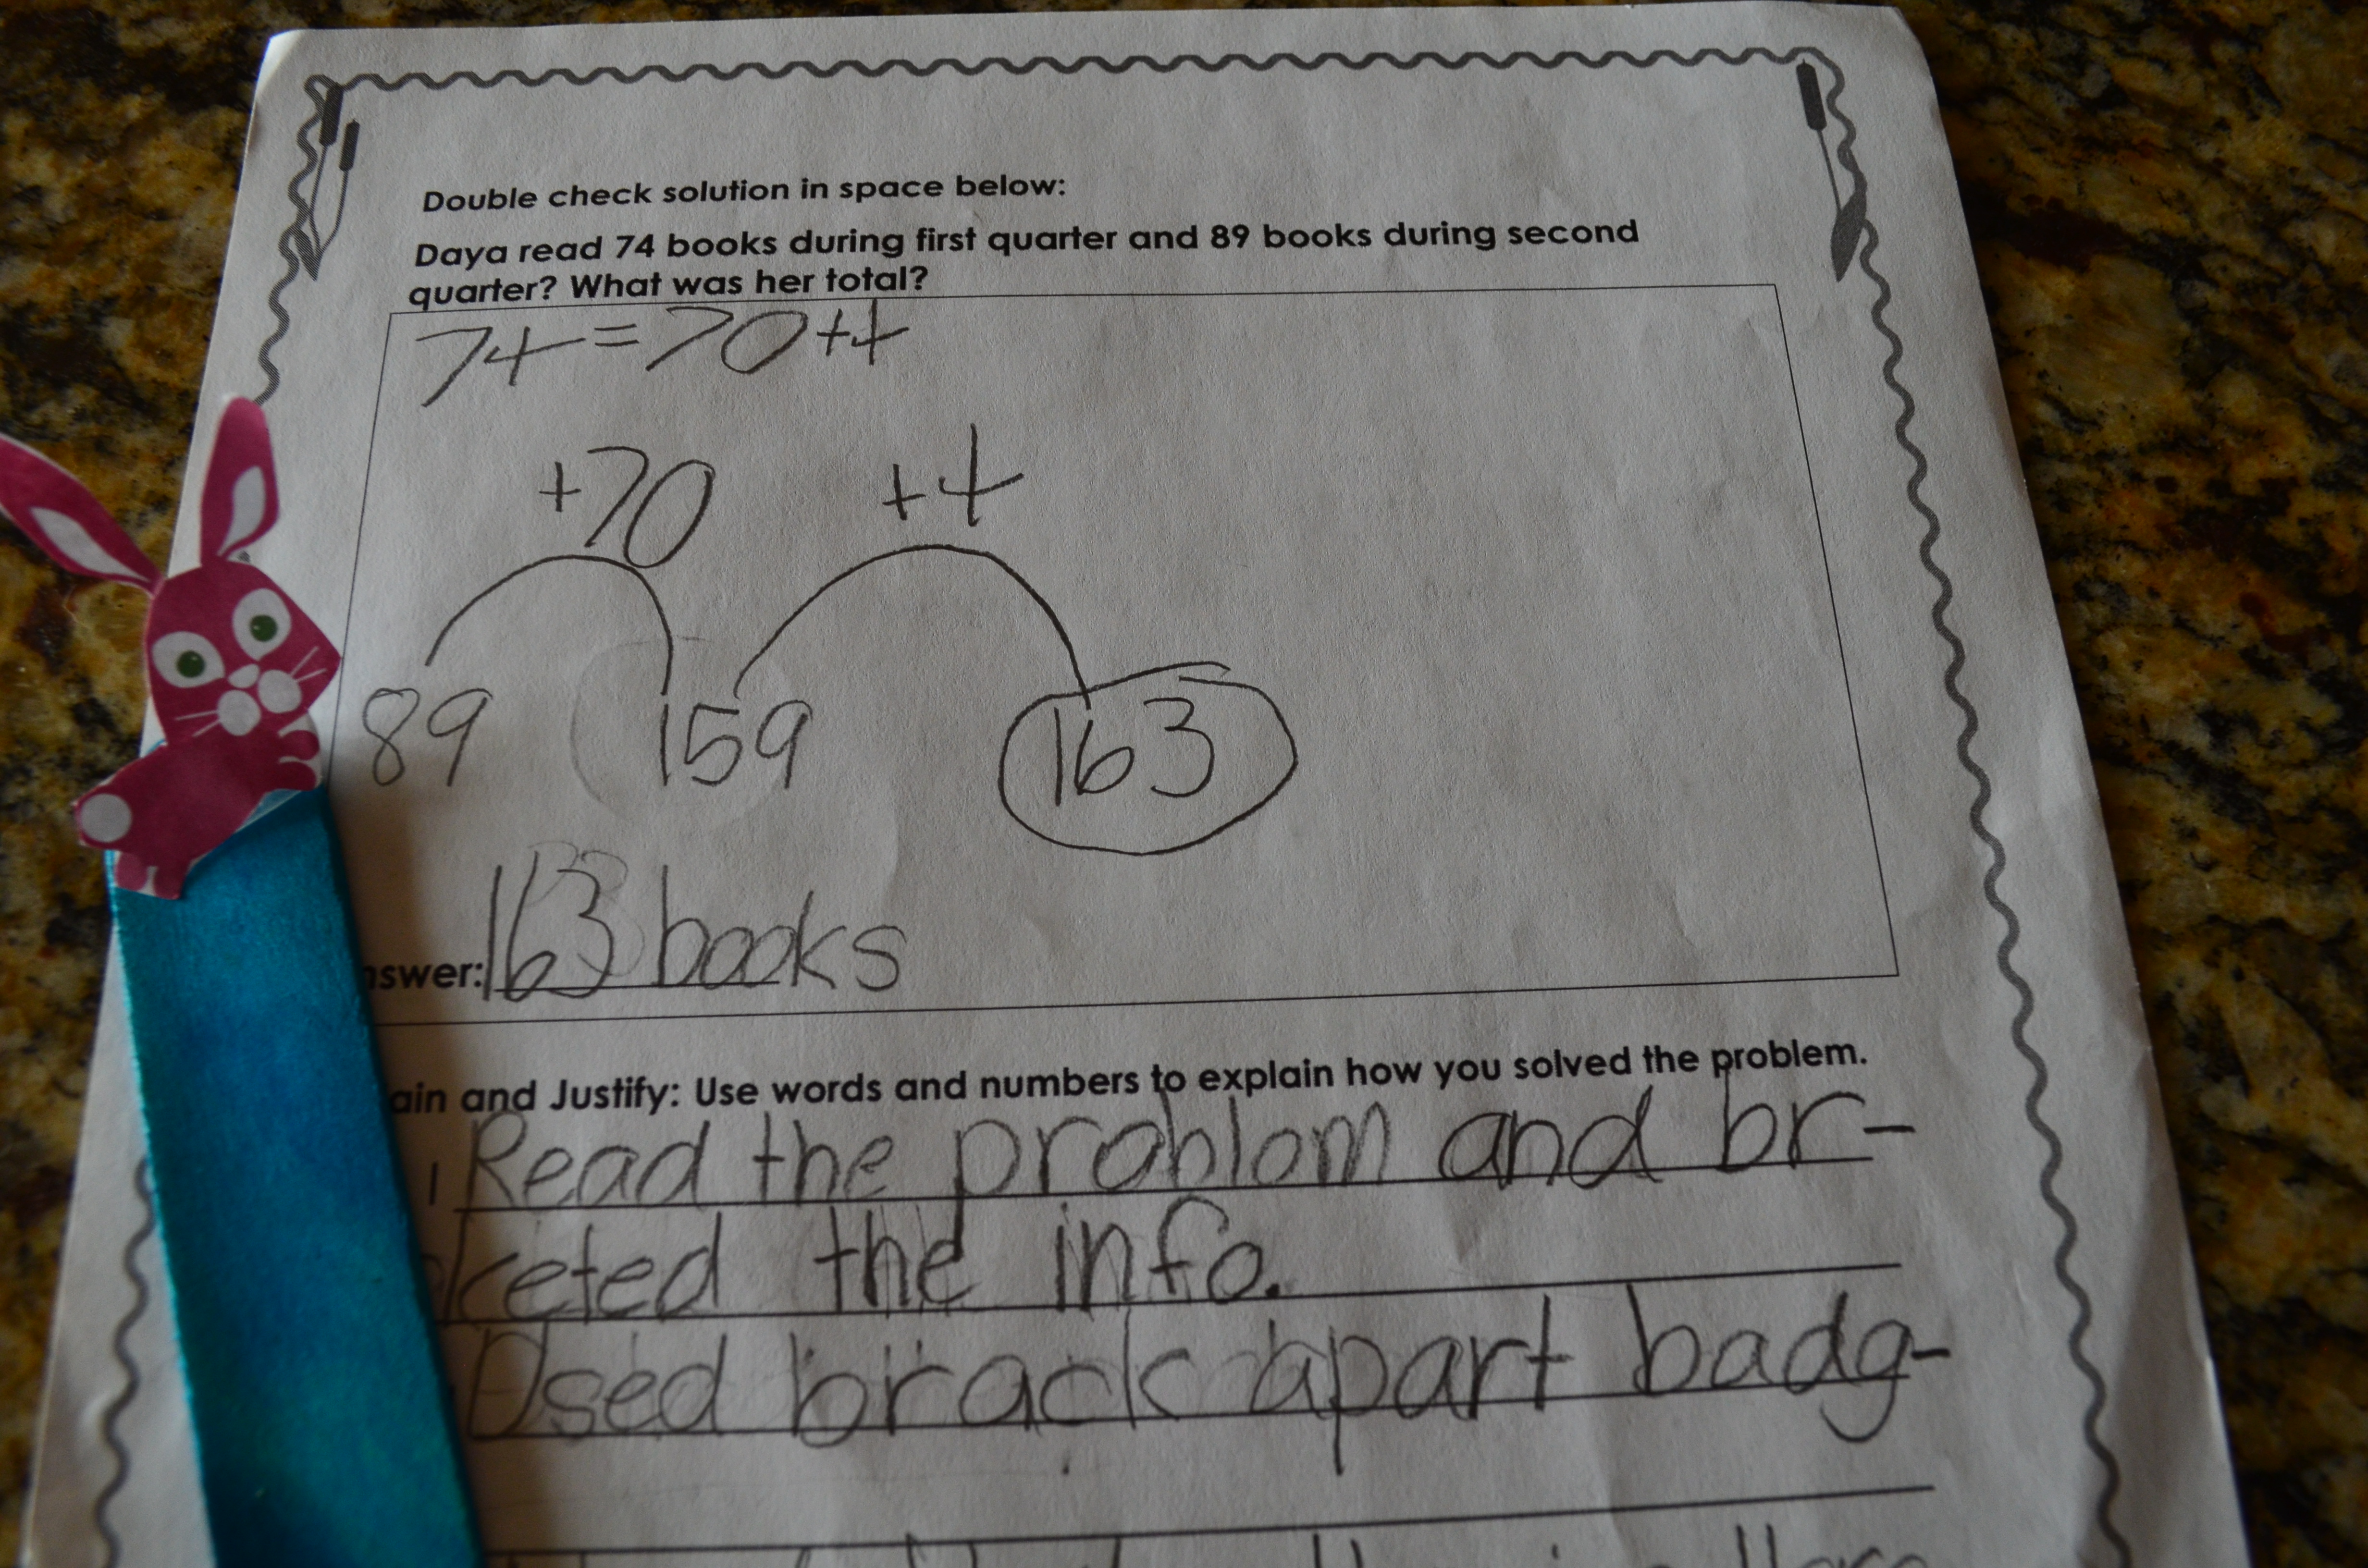 Double check solution in space below:
Daya read 74 books during first quarter and 89 books during second
quarter? What was her total?
74=70+4
+70 +4
89 159 163
nswer: 163 books
ain and Justify: Use words and numbers to explain how you solved the problem.
I Read the problom and br-
keted the info.
Used brack apart badg-